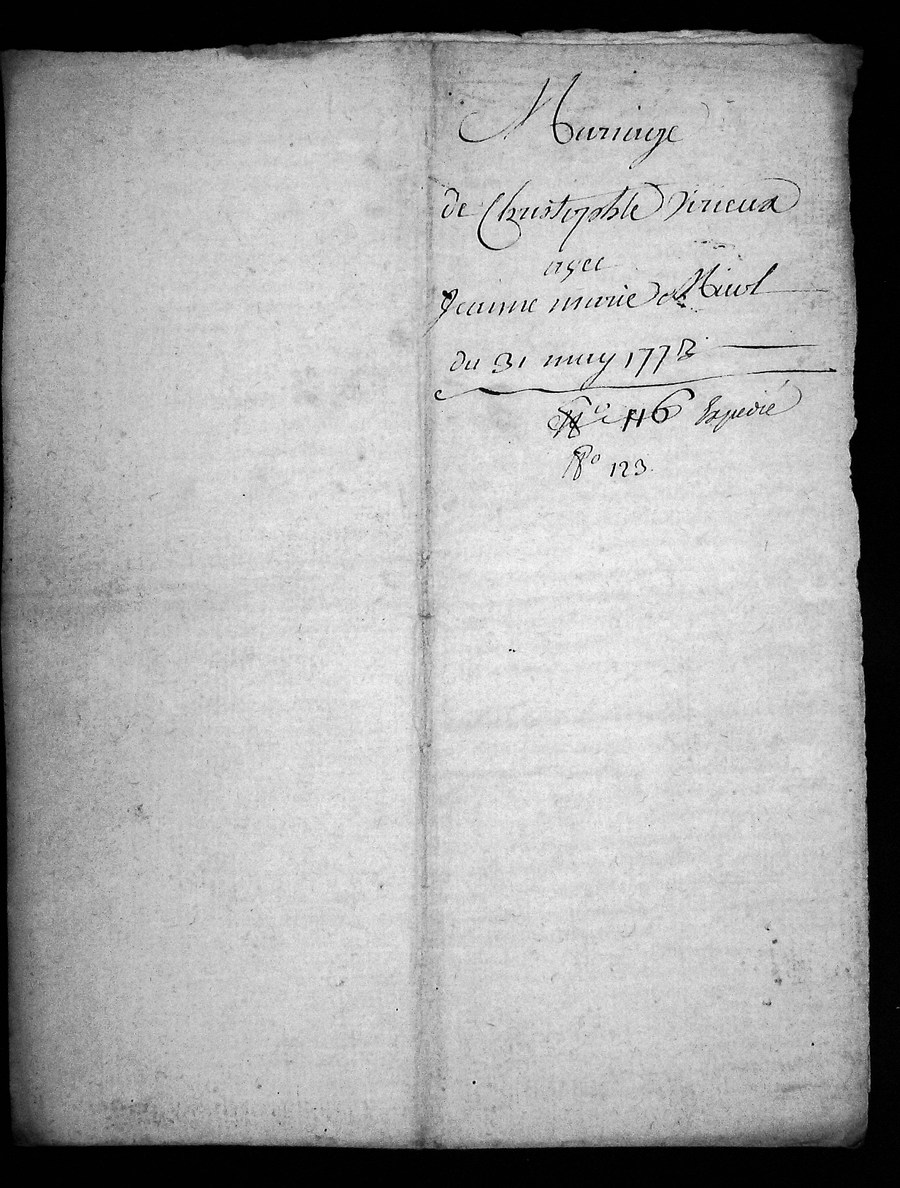 Mariage
de Christophle Virieux
avec
Jeanne marie Nicol
du 31 may 1773
N° 116 Expedié
N° 123.